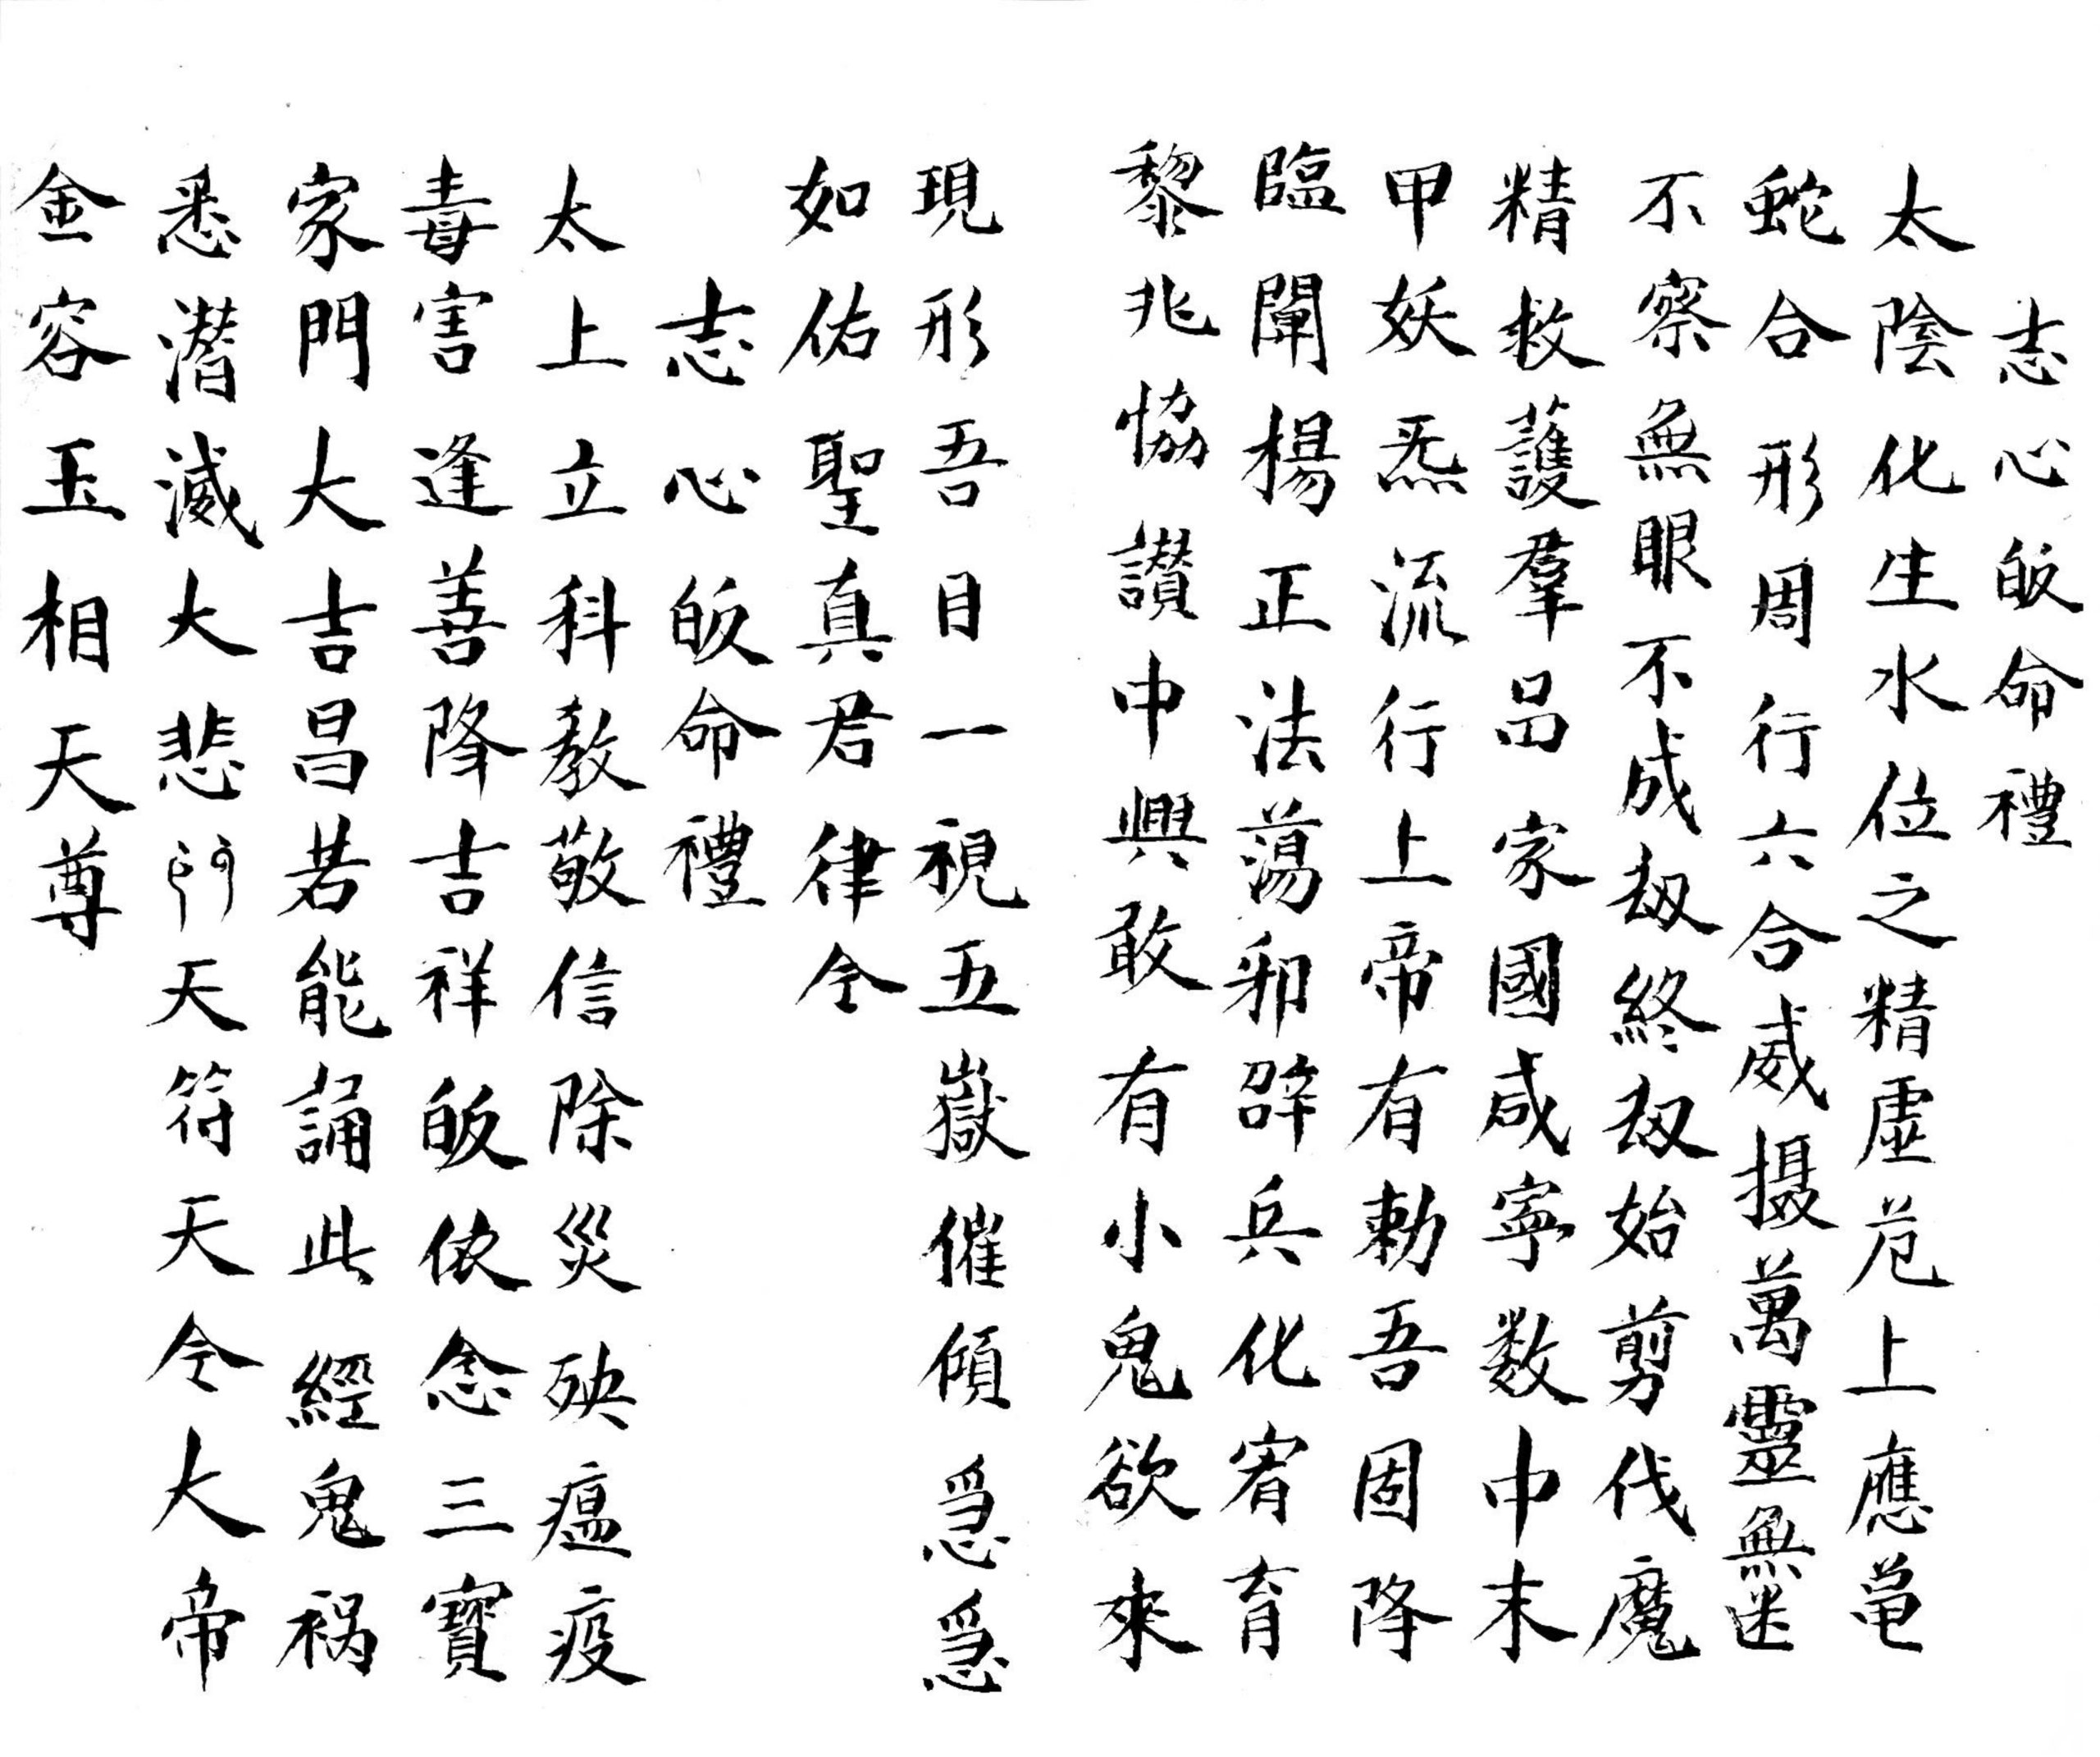 志心皈命禮
太陰化生水位之精虛危上應龜
蛇合形周行六合威摄萬靈無迷
不察無眼不成刼終刼始剪伐魔
精救護羣品家國咸寧数中末
甲妖炁流行上帝有勅吾固降
臨闡揚正法蕩邪辟兵化宥育
黎兆恊讃中興敢有小鬼欲來
現形吾目一視五嶽催傾急急
如佑聖真君律令
志心皈命禮
太上立科教敬信除災殃瘟疫
毒害逢善降吉祥皈依念三寶
家門大吉昌若能誦此經鬼祸
悉潜滅大悲天天符天令大帝
金容玉相天尊